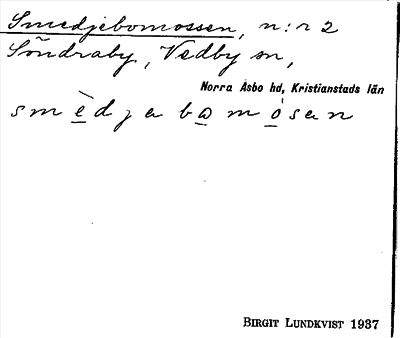 Smedjebomossen, n:r 2
Söndraby, Vedby sn,
Norra Åsbo hd, Kristianstads län
smèdjabamósan
BIRGIT LUNDKVIST 1937